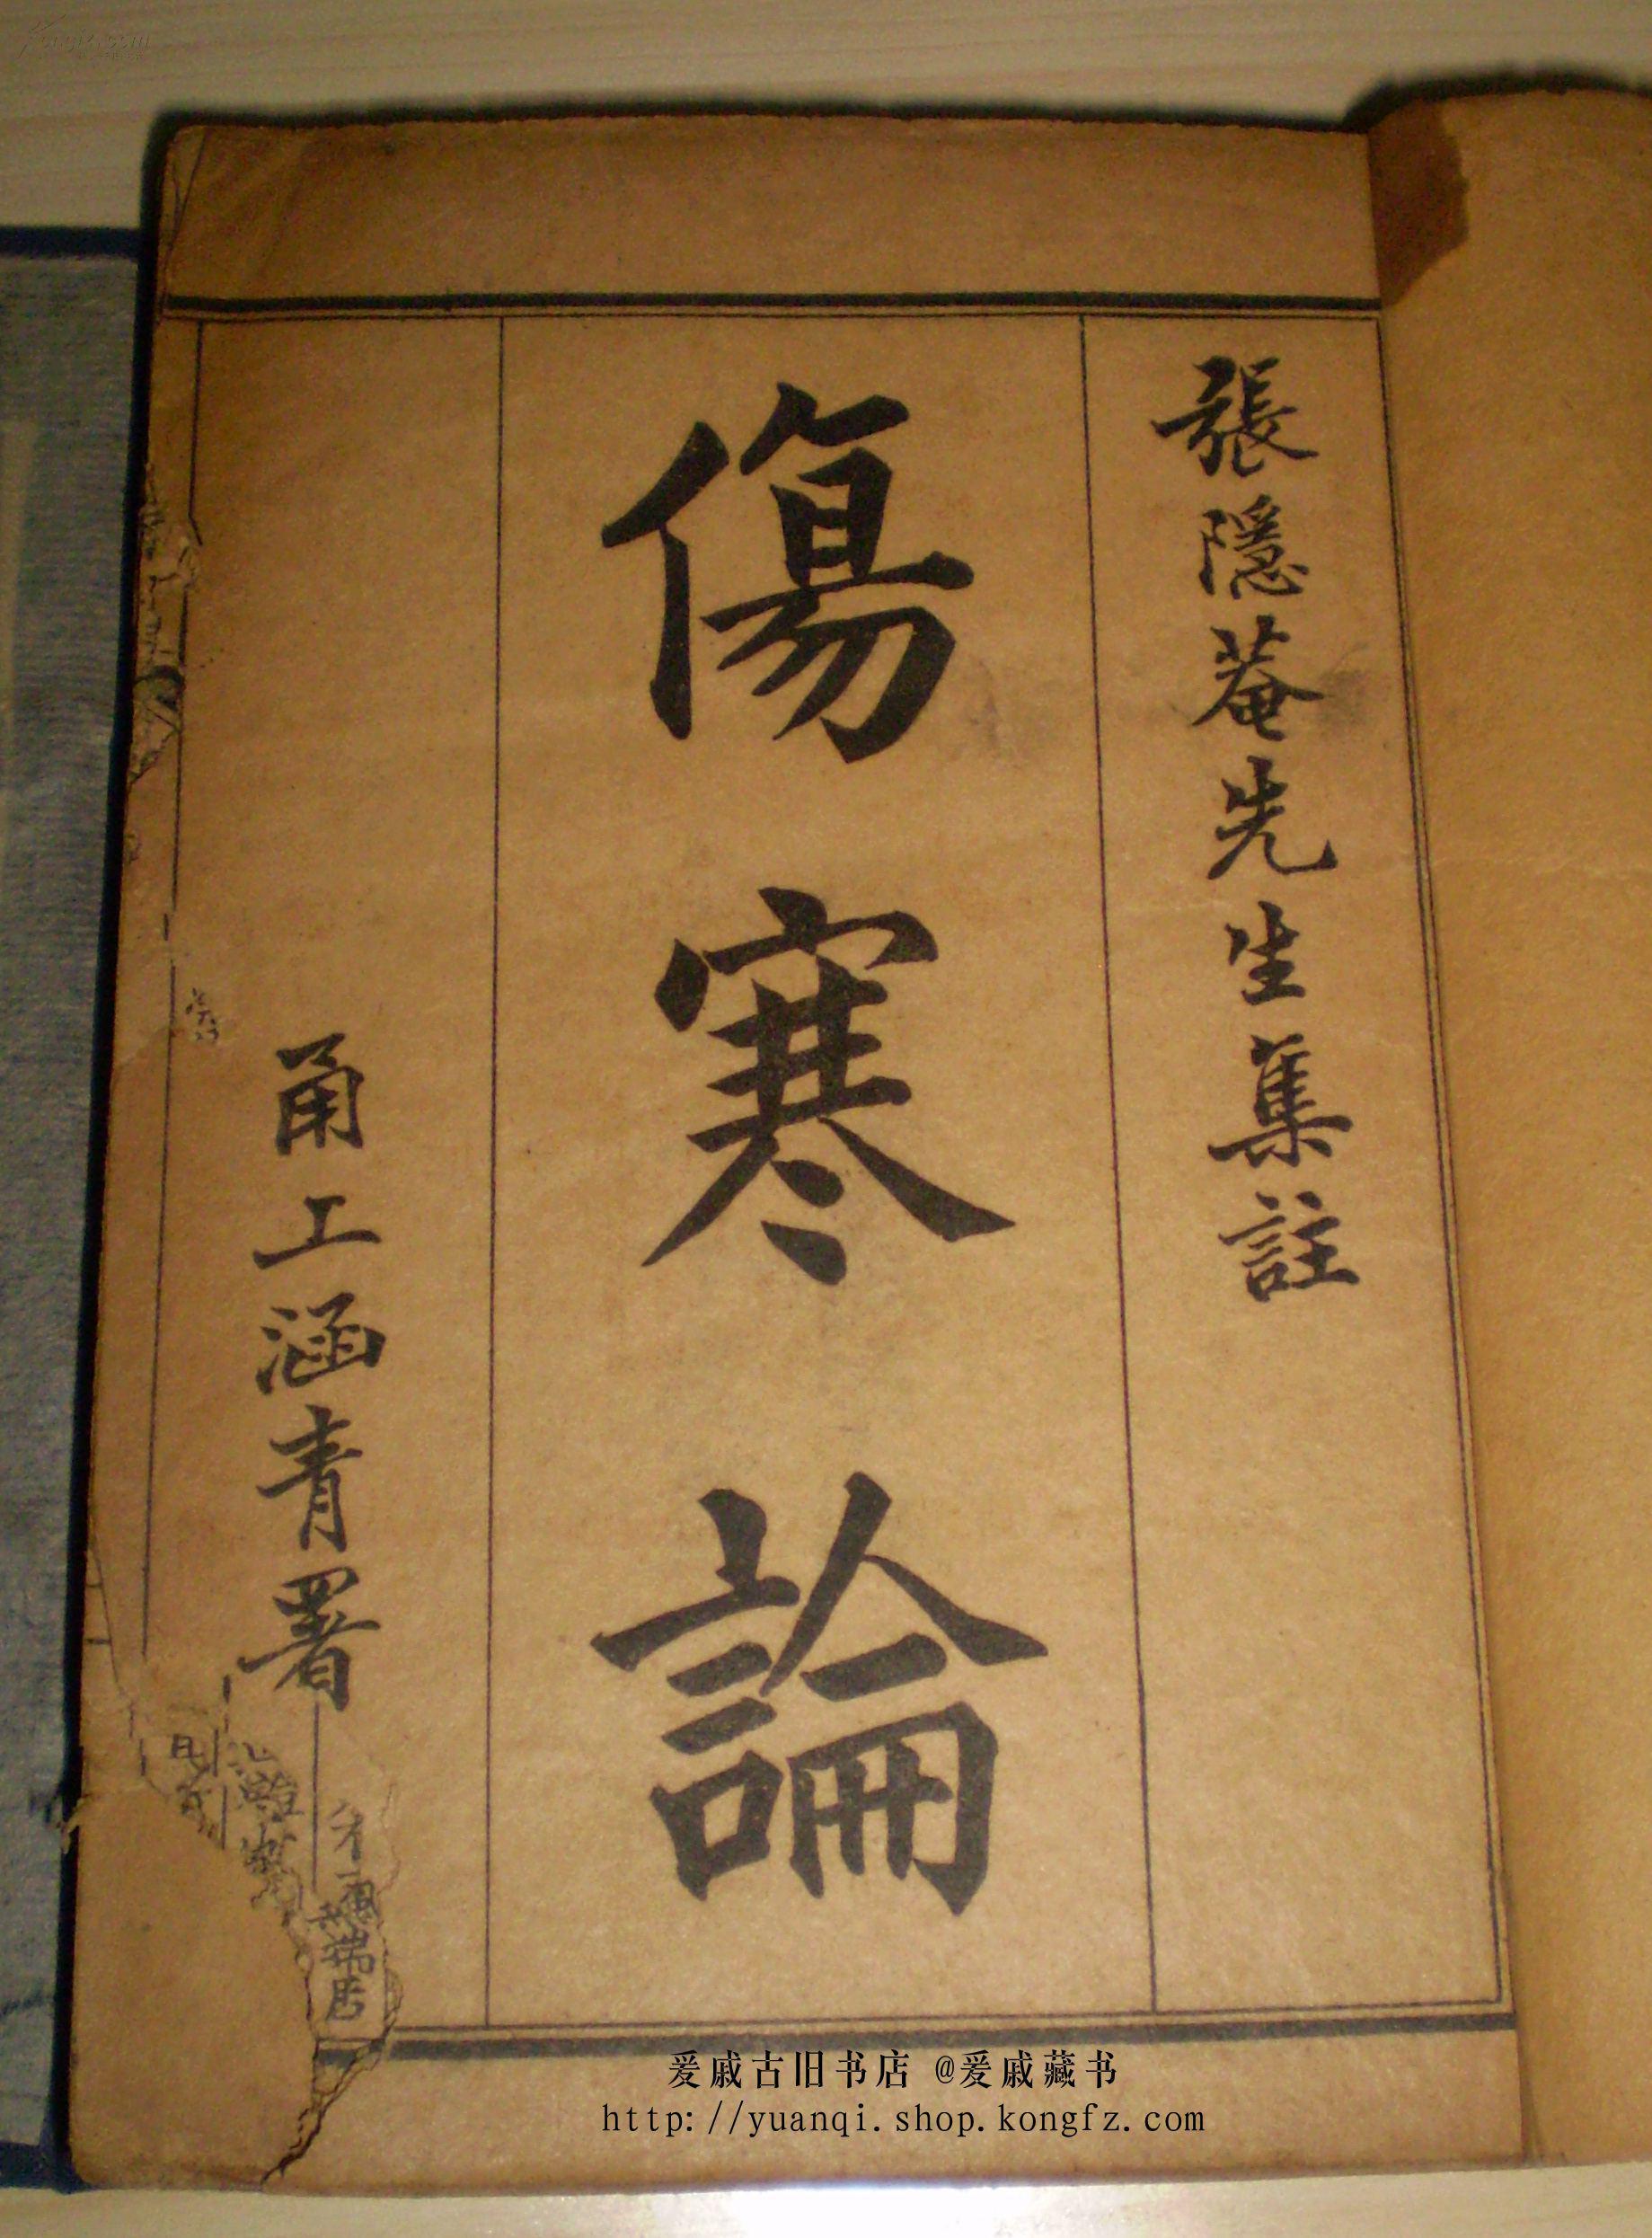 張隱菴先生集註
傷寒論
甬工涵青署
爰戚古旧书店 @爰戚藏书
http://yuanqi.shop.kongfz.com